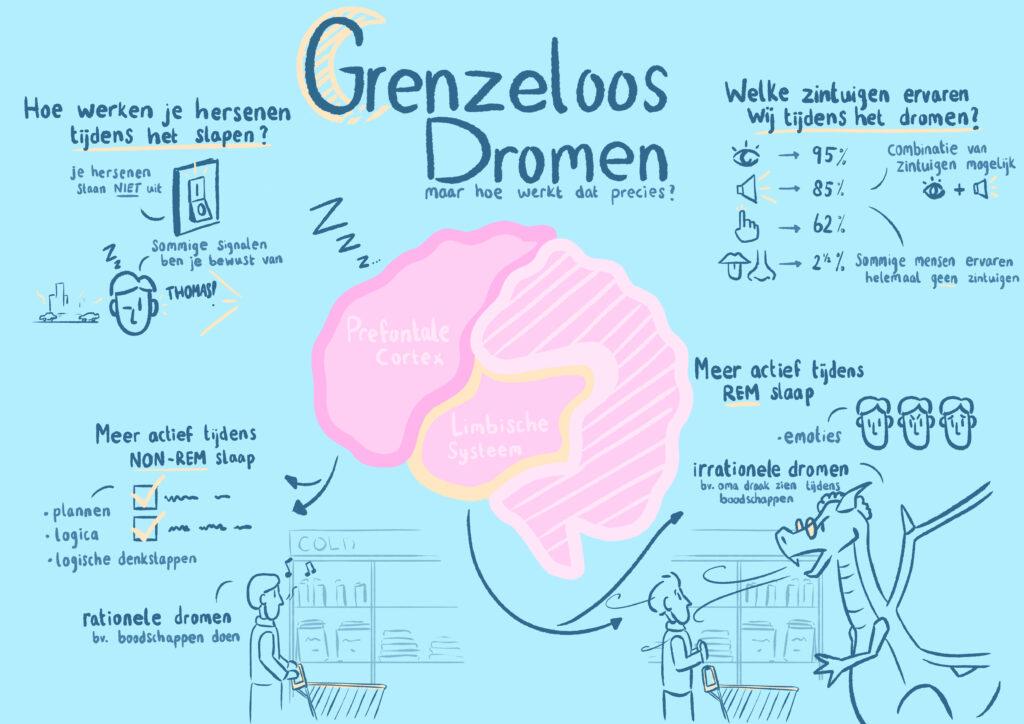 Grenzeloos
Dromen
maar hoe werkt dat precies?
Hoe werken je hersenen
tijdens het slapen?
je hersenen
slaan NIET uit
Sommige signalen
ben je bewust van
ZZ
THOMAS!
ZZZ...
Welke zintuigen ervaren
Wij tijdens het dromen?
→ 95%
→ 85%
→ 62%
→ 2½%
Combinatie van
zintuigen mogelijk
+
Sommige mensen ervaren
helemaal geen zintuigen
Prefontale
Cortex
Limbische
Systeem
Meer actief tijdens
NON-REM slaap
• plannen
• logica
• logische denkslappen
rationele dromen
bv. boodschappen doen
COLD
Meer actief tijdens
REM slaap
• emoties
irrationele dromen
bv. oma draak zien tijdens
boodschappen